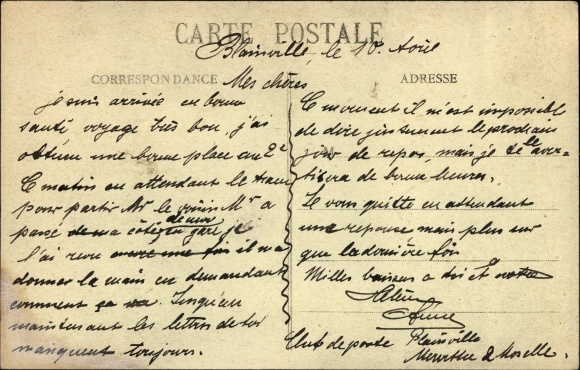 CARTE POSTALE
Blainville, le 10 Août
CORRESPONDANCE
ADRESSE
Mes chères
je suis arrivée en bonne
santé voyage très bon, j'ai
obtenu une bonne place au 2e
C matin en attendant le train
pour partir Mr le voisin Mr a
passé de ma côté de
gare je
l'ai revu encore une fois il m'a
donner la main en demandant
comment ça va. Jusqu'au
maintenant les lettres de toi
manquent toujours.
C moment il m'est impossible
de dire justement le prochain
jour de repos, mais je te le aver-
tisera de bonne heure.
Je vous quitte en attendant
une reponse mais plus sur
que la dernière fois
Milles baisers a toi et votre
Club de poste Blainville
Meurthe & Moselle.